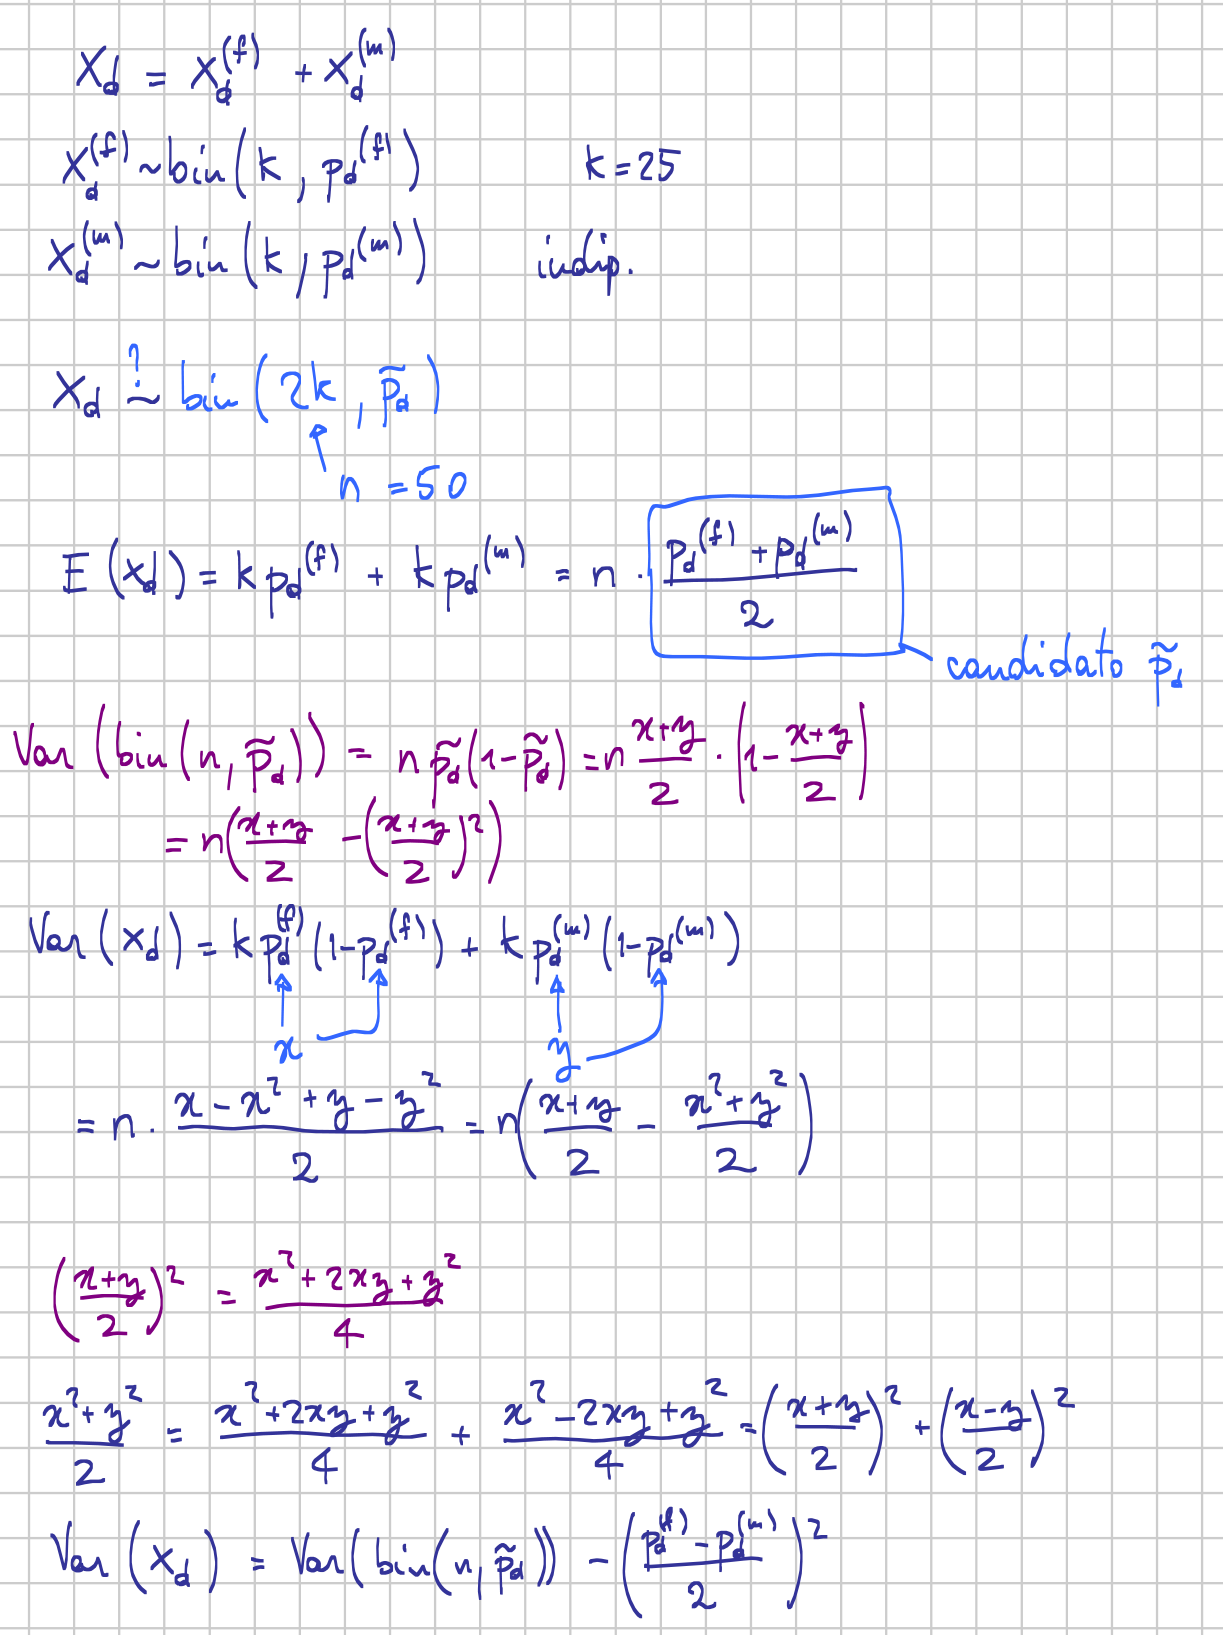 X_d = X_d^(f) + X_d^(m)
X_d^(f) ~ bin(k, p_d^(f))    k = 25
X_d^(m) ~ bin(k, p_d^(m))    indip.
X_d ~^? bin(2k, p̃_d)
↑ n = 50
E(X_d) = k p_d^(f) + k p_d^(m) = n · (p_d^(f) + p_d^(m))/2
candidato p̃_d
Var(bin(n, p̃_d)) = n p̃_d (1 - p̃_d) = n (x+y)/2 · (1 - (x+y)/2)
= n((x+y)/2 - ((x+y)/2)²)
Var(X_d) = k p_d^(f) (1 - p_d^(f)) + k p_d^(m) (1 - p_d^(m))
x    y
= n · (x - x² + y - y²)/2 = n((x+y)/2 - (x² + y²)/2)
((x+y)/2)² = (x² + 2xy + y²)/4
(x² + y²)/2 = (x² + 2xy + y²)/4 + (x² - 2xy + y²)/4 = ((x+y)/2)² + ((x-y)/2)²
Var(X_d) = Var(bin(n, p̃_d)) - ((p_d^(f) - p_d^(m))/2)²